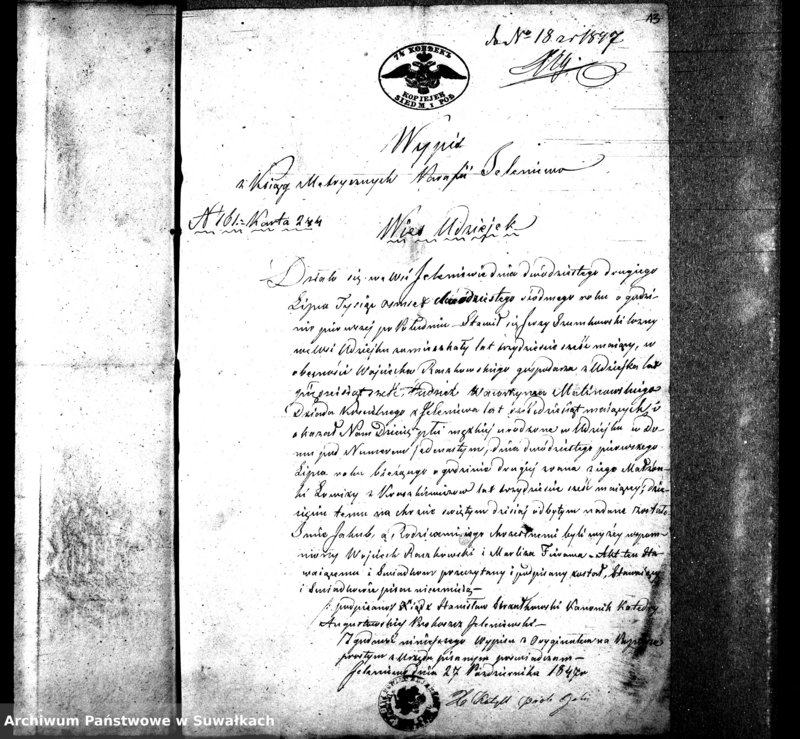 13
do No 18 z r 1847
74 КОПѢЕКЪ
KOPIEJEK
SIEDM i PÓŁ
Wypis
z Ksiąg Metrycznych Parafii Jeleniewo
N 161 - Karta 244
Wieś Udziejek
Działo się we wsi Jeleniewie dnia dwódziestego drugiego
Lipca Tysiąc osmset dwódziestego siódmego roku o godzi-
nie pierwszej po Południu. Stawił się Jerzy
we Wsi Udziejku zamieszkały lat trzydzieście sześć maiący, w
obecności Woyciecha Raczkowskiego gospodarza z Udziejka lat
pięćdziesiąt sześć, tudzież Wawrzynca Malinowskiego
Dziada Kościelnego z Jeleniewa lat maiących, i
okazał Nam Dziecię płci męzkiej urodzone w Udziejku w do-
mu pod Numerem jedenastym, dnia dwódziestego pierwszego
Lipca roku bieżącego o godzinie drugiej zrana z iego Małżon-
ki Łowizy z lat trzydzieście sześć maiącey; dzie-
cięciu temu na chrzcie świętym dzisiaj odbytym nadane zostało
Imie Jakub, a Rodzicami iego chrzestnemi byli wyżey wspom-
niony Woyciech Raczkowski i Akt ten sta-
waiącemu i Świadkom przeczytany i podpisany został, Stawaiący
i Świadkowie pisać nieumieią -
/: podpisano: Xiądz Stanisław Kanonik Katedry
Augustowskiey Proboszcz Jeleniewski -
Zgodność ninieyszego Wypisu z Oryginałem na Papierze
prostym z Urzędu pisanym poświadczam -
Jeleniewo dnia 27 Października 1847 ro
Archiwum Państwowe w Suwałkach